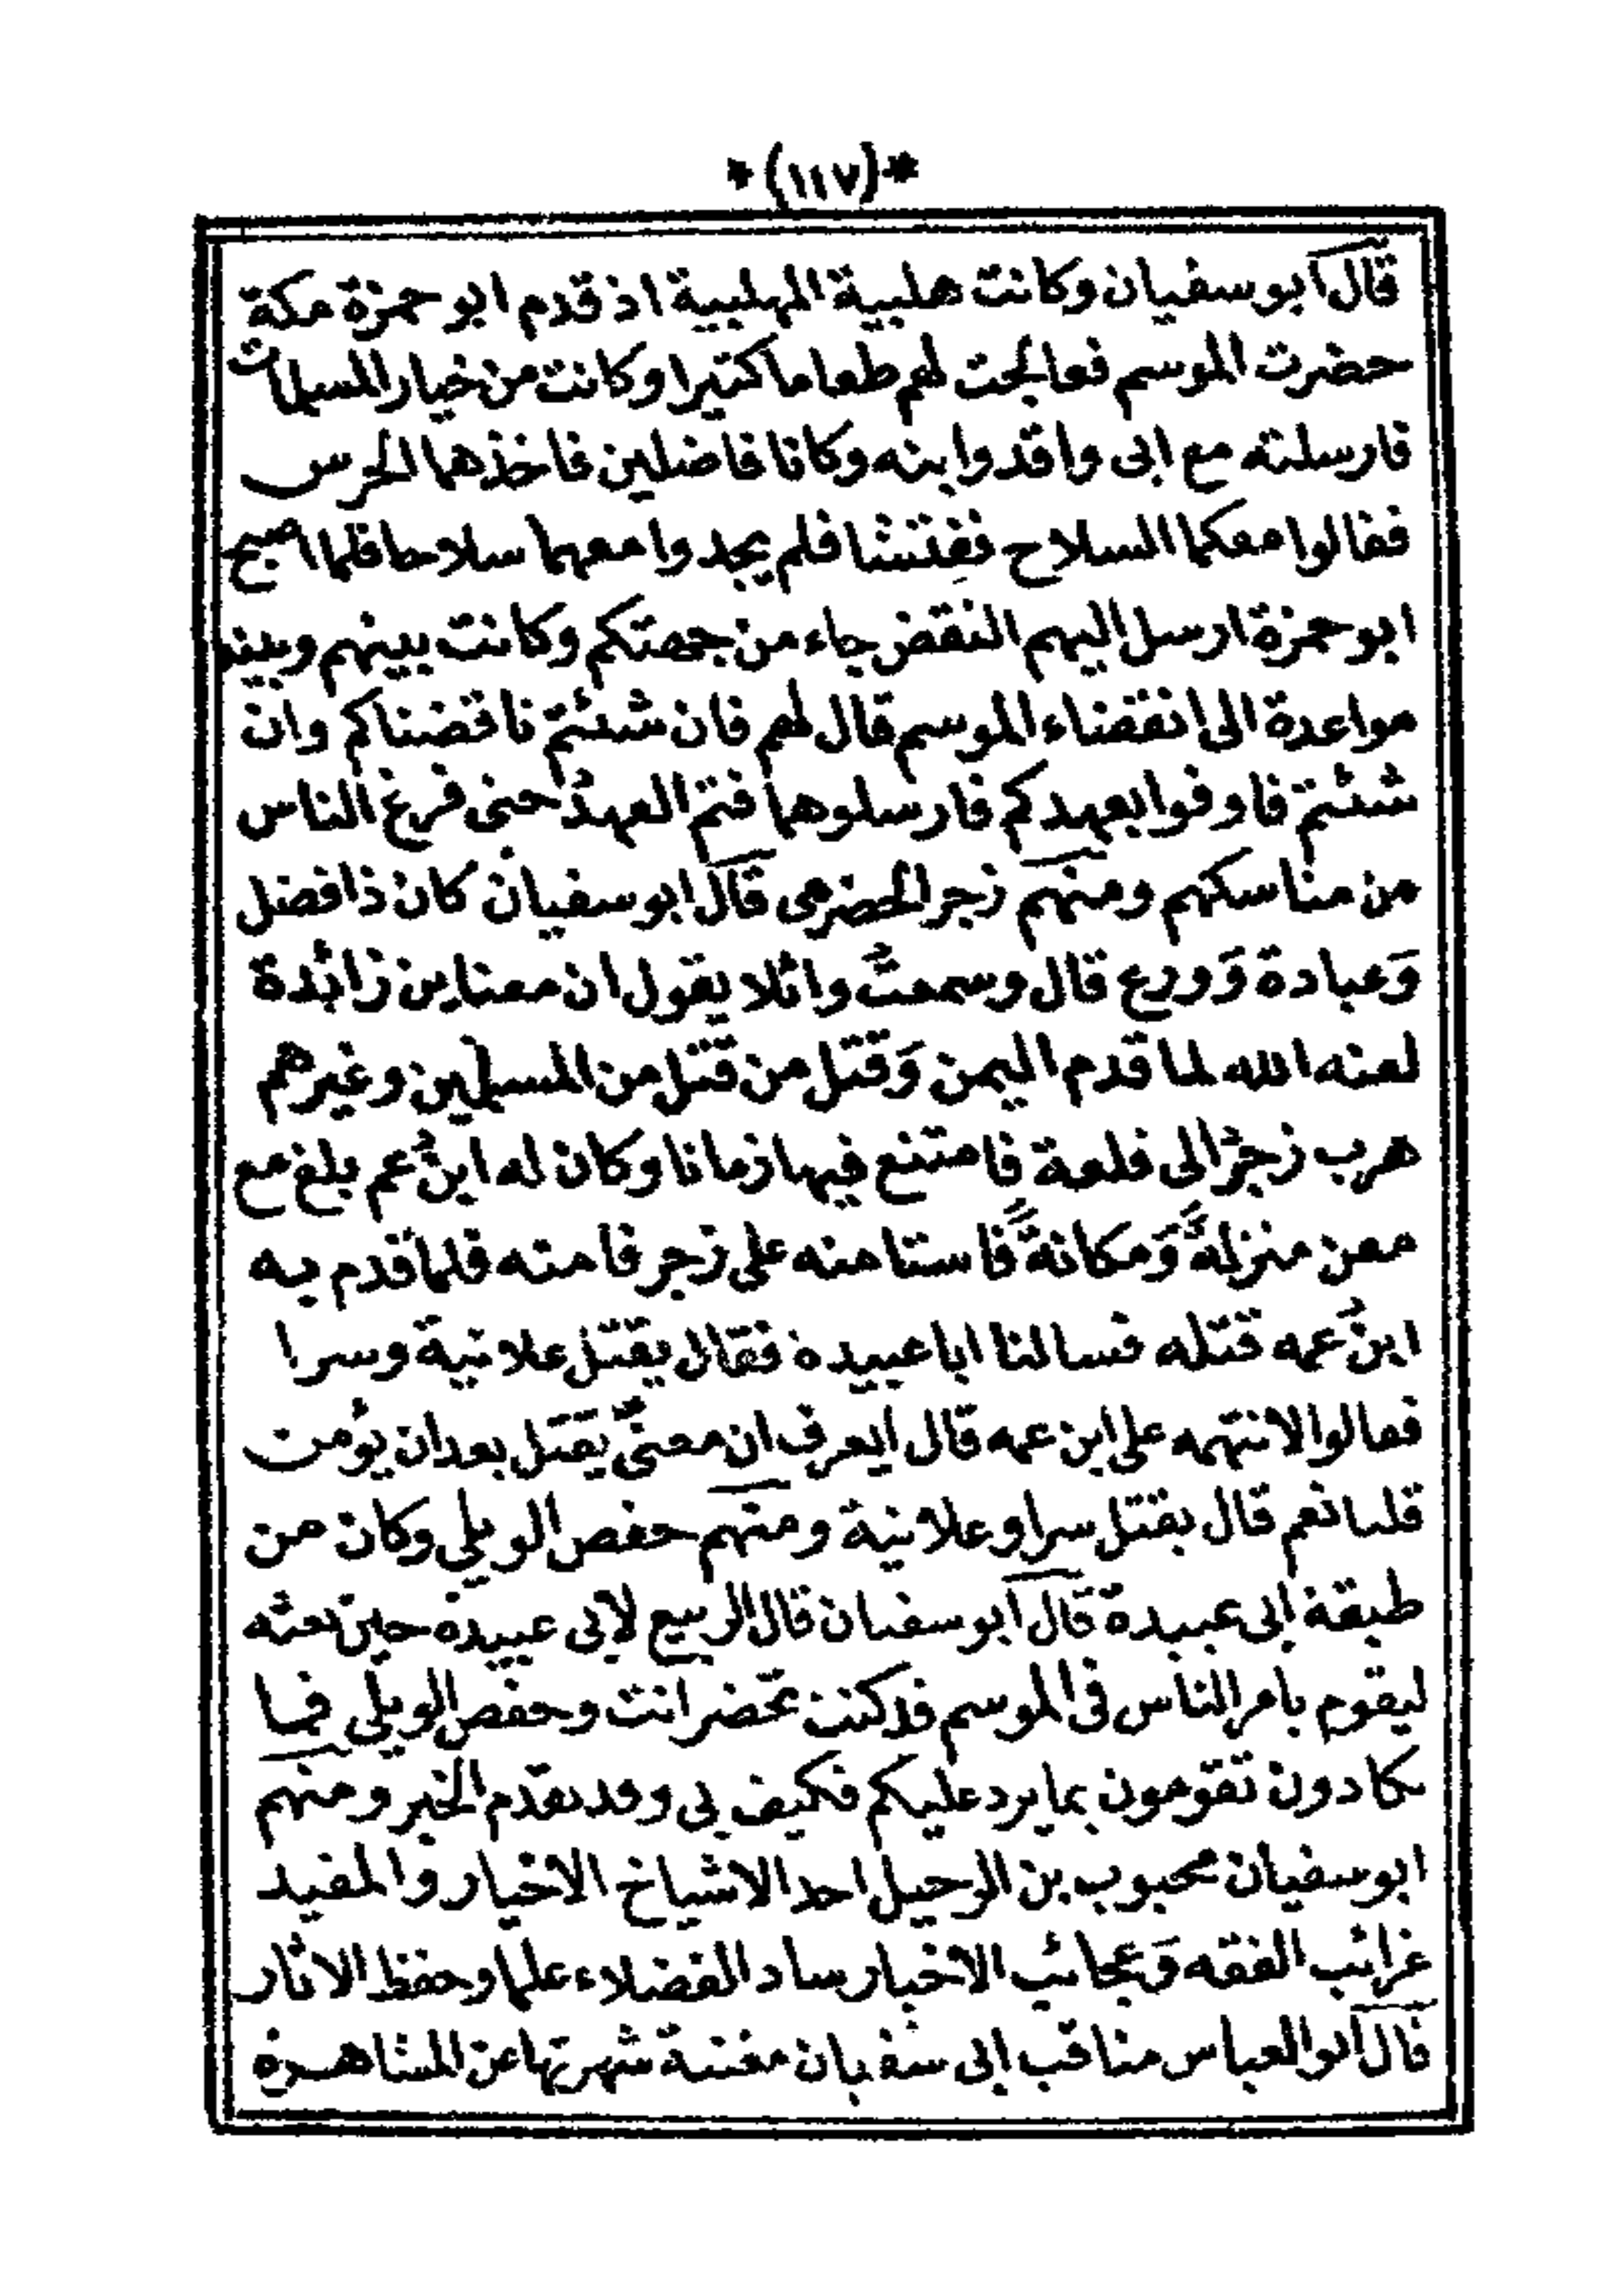 *(١١٧)*
قال ابو سفيان وكانت هلبية المهلبية اذ قدم ابو حمزة مكة
حضرت الموسم فعالجت لهم طعاما كثيرا وكانت من خيار المسلمات
فارسلته مع ابى واقد وابنه وكانا فاضلين فاخذهما الحرس
فقالوا معكما السلاح ففتشا فلم يجدوا معهما سلاحا فلما اصبح
ابو حمزة ارسل اليهم النقض جاء من جهتكم وكانت بينهم وبينه
مواعدة الى انقضاء الموسم قال لهم فان شئتم ناقضناكم وان
شئتم فاوفوا بعهدكم فارسلوهما فتم العهد حتى فرغ الناس
من مناسكهم ومنهم زجر الحضرمى قال ابو سفيان كان ذا فضل
وَعبادة وَورع قال وسمعتُ وائلا يقول ان معنا بن زائدة
لعنه الله لما قدم اليمن وَقتل من قتل من المسلمين وغيرهم
هرب زجرٌ الى قلعة فامتنع فيها زمانا وكان له ابنُ عم بلغ مع
معن منزلةً وَمكانةً فاستامنه على زجر فامنه فلما قدم به
ابنُ عمه قتله فسالنا ابا عبيده فقال يقتل علانية وسرا
فقالوا لا نتهمه على ابن عمه قال ايعرف ان معنًى يقتل بعد ان يؤمن
قلنا نعم قال يقتل سرا وعلانية ومنهم حفص الويلى وكان من
طبقة ابى عبيدة قال ابو سفيان قال الربيع لابى عبيدة حين بعثه
ليقوم بامر الناس فى الموسم قد كنت تحضر انت وحفص الويلى فما
تكادون تقومون بما يرد عليكم فكيف بى وقد تقدم الخبر ومنهم
ابو سفيان محبوب بن الرحيل احد الاشياخ الاخيار والمفيد
غرائب الفقه وَعجائب الاخبار ساد الفضلاء علما وحفظ الاثار
قال ابو العباس مناقب ابى سفيان مغنية شهرتها عن المشاهدة